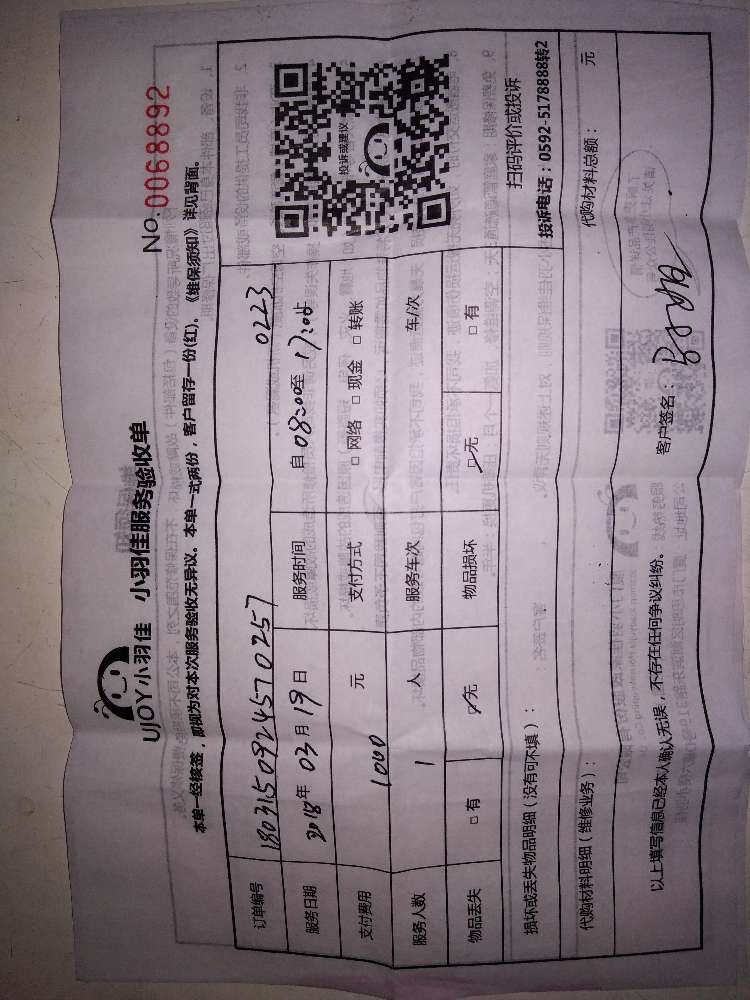 UJOY小羽佳 小羽佳服务验收单
No.0068892
本单一经核签，即视为对本次服务验收无异议。本单一式两份，客户留存一份(红)。《维保须知》详见背面。
订单编号 1803150924570257 0223
服务日期 2018年03月19日 服务时间 自08:00至17:00
支付费用 1000 元 支付方式 □网络 □现金 □转账
服务人数 1 人 服务车次 车/次
物品丢失 □有 ☑无 物品损坏 ☑无 □有
损坏或丢失物品明细（没有可不填）：
代购材料明细（维修业务）： 代购材料总额： 元
以上填写信息已经本人确认无误，不存在任何争议纠纷。 客户签名：
投诉或建议
扫码评价或投诉
投诉电话：0592-5178888转2